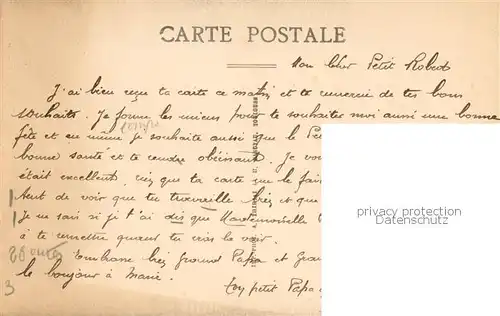 CARTE POSTALE
Mon Cher Petit Robert
J'ai bien reçu ta carte ce matin et te remercie de tes bons
souhaits. Je forme les miens pour te souhaiter moi aussi une bonne
fête et en même je souhaite aussi que le
bonne santé et te rendre obéissant. Je
était excellent, rien que ta carte me le
de voir que tu travailles bien et que
Je ne sais si je t'ai dis que Mademoiselle
à te remettre quand tu iras la voir.
Embrasse bien Grand Papa et
le bonjour à Marie.
Ton petit Papa
privacy protection
Datenschutz
3